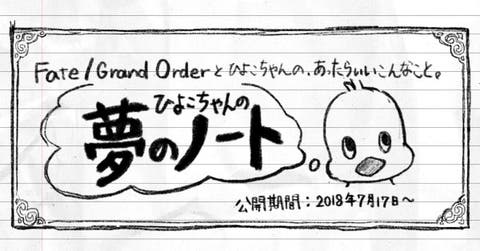 Fate/Grand Orderとひよこちゃんの、あったらいいこんなこと。
ひよこちゃんの
夢のノート
公開期間：2018年7月17日～